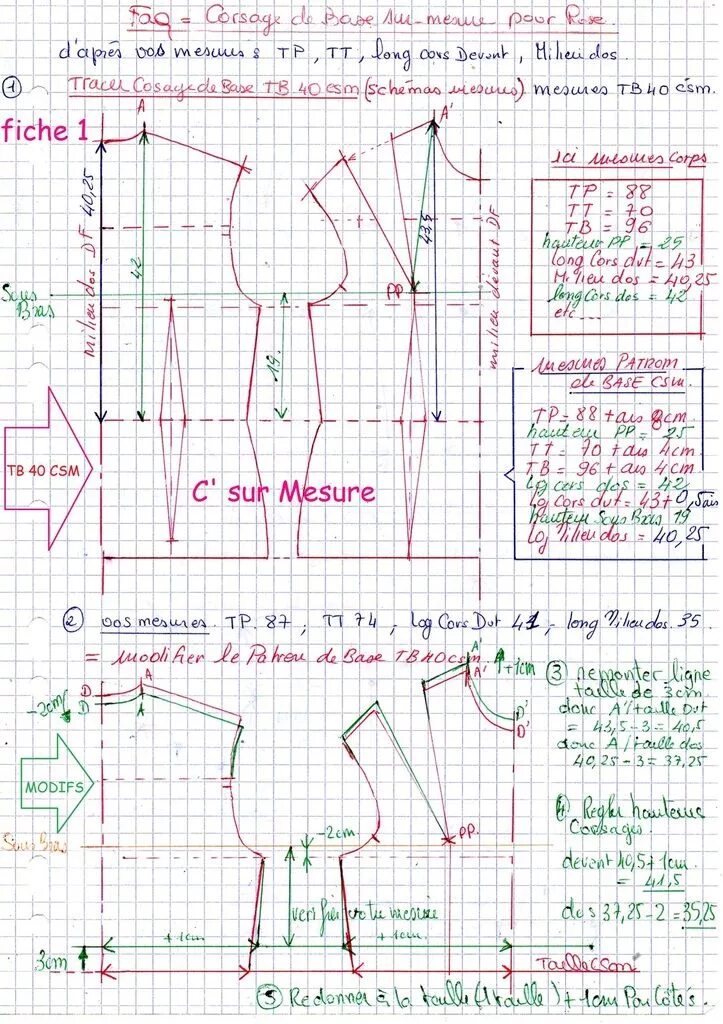 FAQ = Corsage de Base sur-mesure pour Rose.
d'après vos mesures TP, TT, long cors Devant, Milieu dos.
1 Tracer Cosage de Base TB.40 csm (schémas mesures) mesures TB 40 csm.
fiche 1
A
A'
milieu dos DF 40,25
42
Sous Bras
19.
43,5
PP
milieu devant DF
ici mesures corps
TP = 88
TT = 70
TB = 96
hauteur PP = 25
long Cors dvt = 43
Milieu dos = 40,25
long Cors dos = 42
etc...
mesures PATROM
de BASE CSM.
TP = 88 + ais 8cm.
hauteur PP = 25
TT = 70 + ais 4cm
TB = 96 + ais 4cm
Lg cors dos = 42
Lg Cors dvt = 43 + 0,5 ais
hauteur Sous Bras 19
Lg Milieu dos = 40,25
TB 40 CSM
C' sur Mesure
2 vos mesures. TP. 87, TT 74, log Cors Dvt 41, - long Milieu dos. 35
= modifier le Patron de Base TB 40 csm.
-2cm
D
D
A
A
A'
A'
+1cm
D'
D'
3 remonter ligne
taille de 3cm.
donc A'/taille Dvt
= 43,5 - 3 = 40,5
donc A/taille dos
40,25 - 3 = 37,25
MODIFS
Sous Bras
-2cm
PP.
4 Régler hauteurs
Corsages.
devant 40,5 + 1cm
= 41,5
dos 37,25 - 2 = 35,25
verifier votre mesure
+1cm
+1cm
3cm
Taille CSM
5 Redonner à la taille (1 taille) + 1cm Par Côtés.